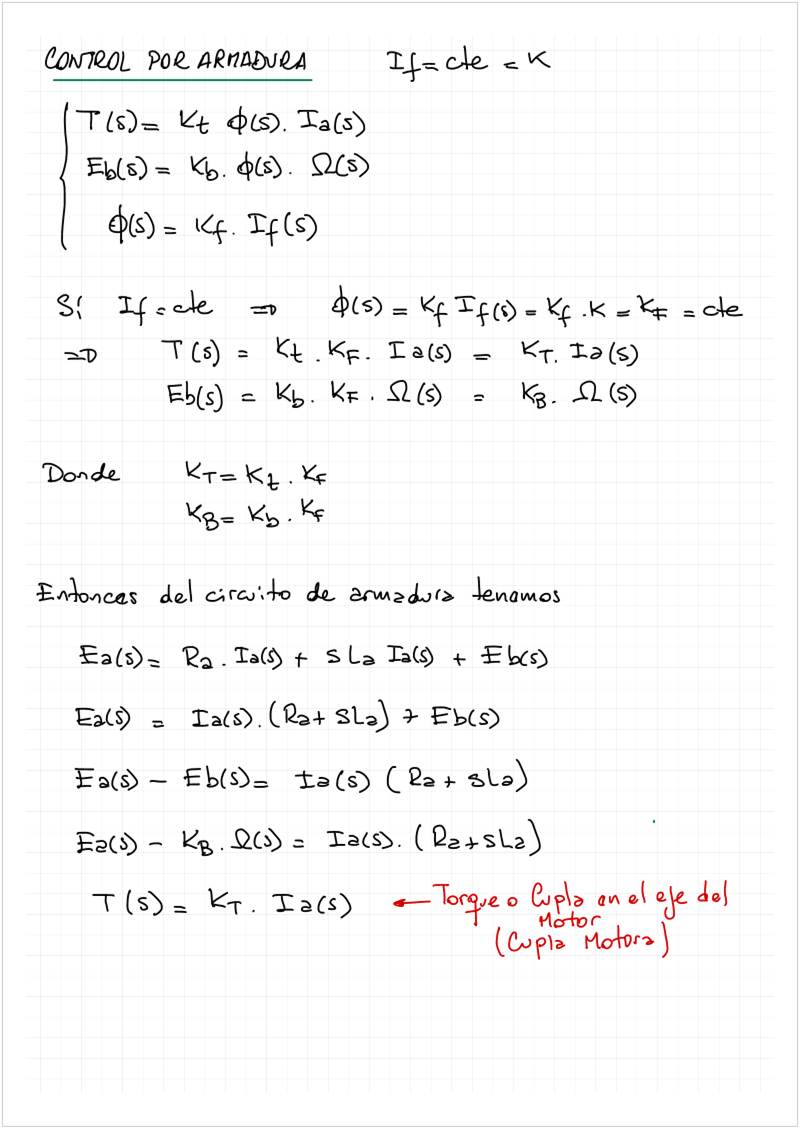 CONTROL POR ARMADURA If = cte = K
T(s) = Kt ϕ(s). Ia(s)
Eb(s) = Kb. ϕ(s). Ω(s)
ϕ(s) = Kf. If(s)
Si If = cte => ϕ(s) = Kf If(s) = Kf . K = KF = cte
=> T(s) = Kt . KF . Ia(s) = KT. Ia(s)
Eb(s) = Kb. KF . Ω(s) = KB. Ω(s)
Donde KT = Kt . Kf
KB = Kb . Kf
Entonces del circuito de armadura tenemos
Ea(s) = Ra . Ia(s) + sLa Ia(s) + Eb(s)
Ea(s) = Ia(s). (Ra + sLa) + Eb(s)
Ea(s) - Eb(s) = Ia(s) (Ra + sLa)
Ea(s) - KB . Ω(s) = Ia(s). (Ra + sLa)
T(s) = KT . Ia(s) ← Torque o Cupla en el eje del
Motor
(Cupla Motora)